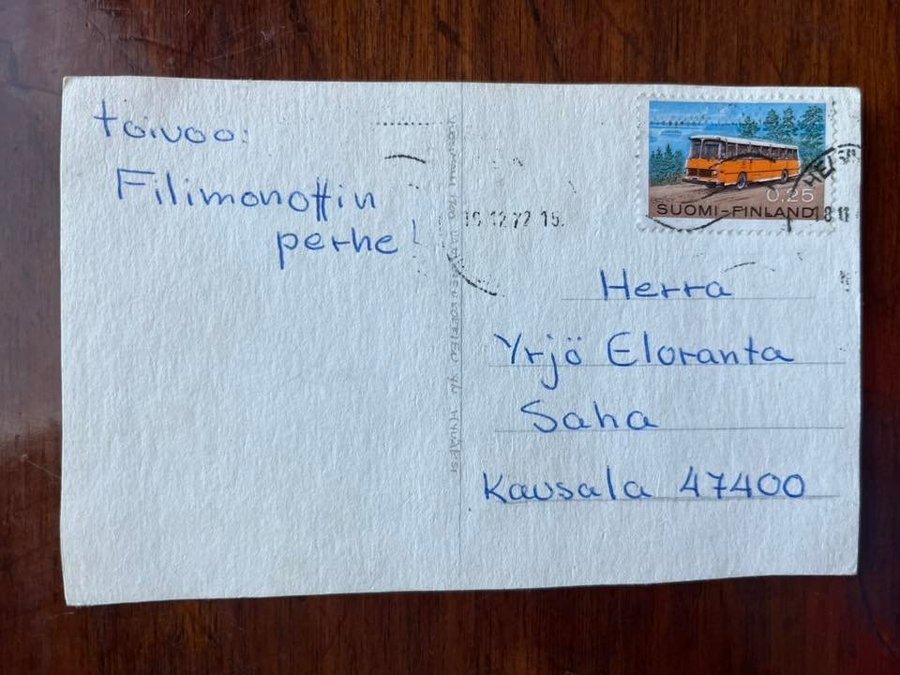 toivoo:
Filimonoffin
perhe!
19.12.72 15.
0.25
SUOMI-FINLAND
Herra
Yrjö Eloranta
Saha
Kausala 47400